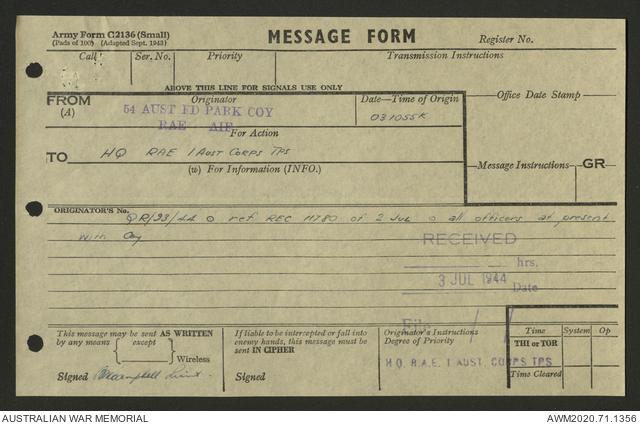 Army Form C2136 (Small)
(Pads of 100) (Adapted Sept. 1943)
MESSAGE FORM
Register No.
Call
Ser. No.
Priority
Transmission Instructions
ABOVE THIS LINE FOR SIGNALS USE ONLY
FROM
(A)
Originator
54 AUST FD PARK COY
RAE AIF
Date—Time of Origin
031055K
Office Date Stamp
For Action
TO
HQ RAE 1 AUST CORPS TPS
(W) For Information (INFO.)
Message Instructions
GR
ORIGINATOR'S No.
QR/23/44 o ref REC 11780 of 2 Jul o all officers at present
with Coy
RECEIVED
hrs.
3 JUL 1944
Date
File / /
H.Q. R.A.E. 1 AUST. CORPS TPS
This message may be sent AS WRITTEN
by any means
except
Wireless
Signed
Campbell Lieut.
If liable to be intercepted or fall into
enemy hands, this message must be
sent IN CIPHER
Signed
Originator's Instructions
Degree of Priority
Time
System
Op
THI or TOR
Time Cleared
AUSTRALIAN WAR MEMORIAL
AWM2020.71.1356